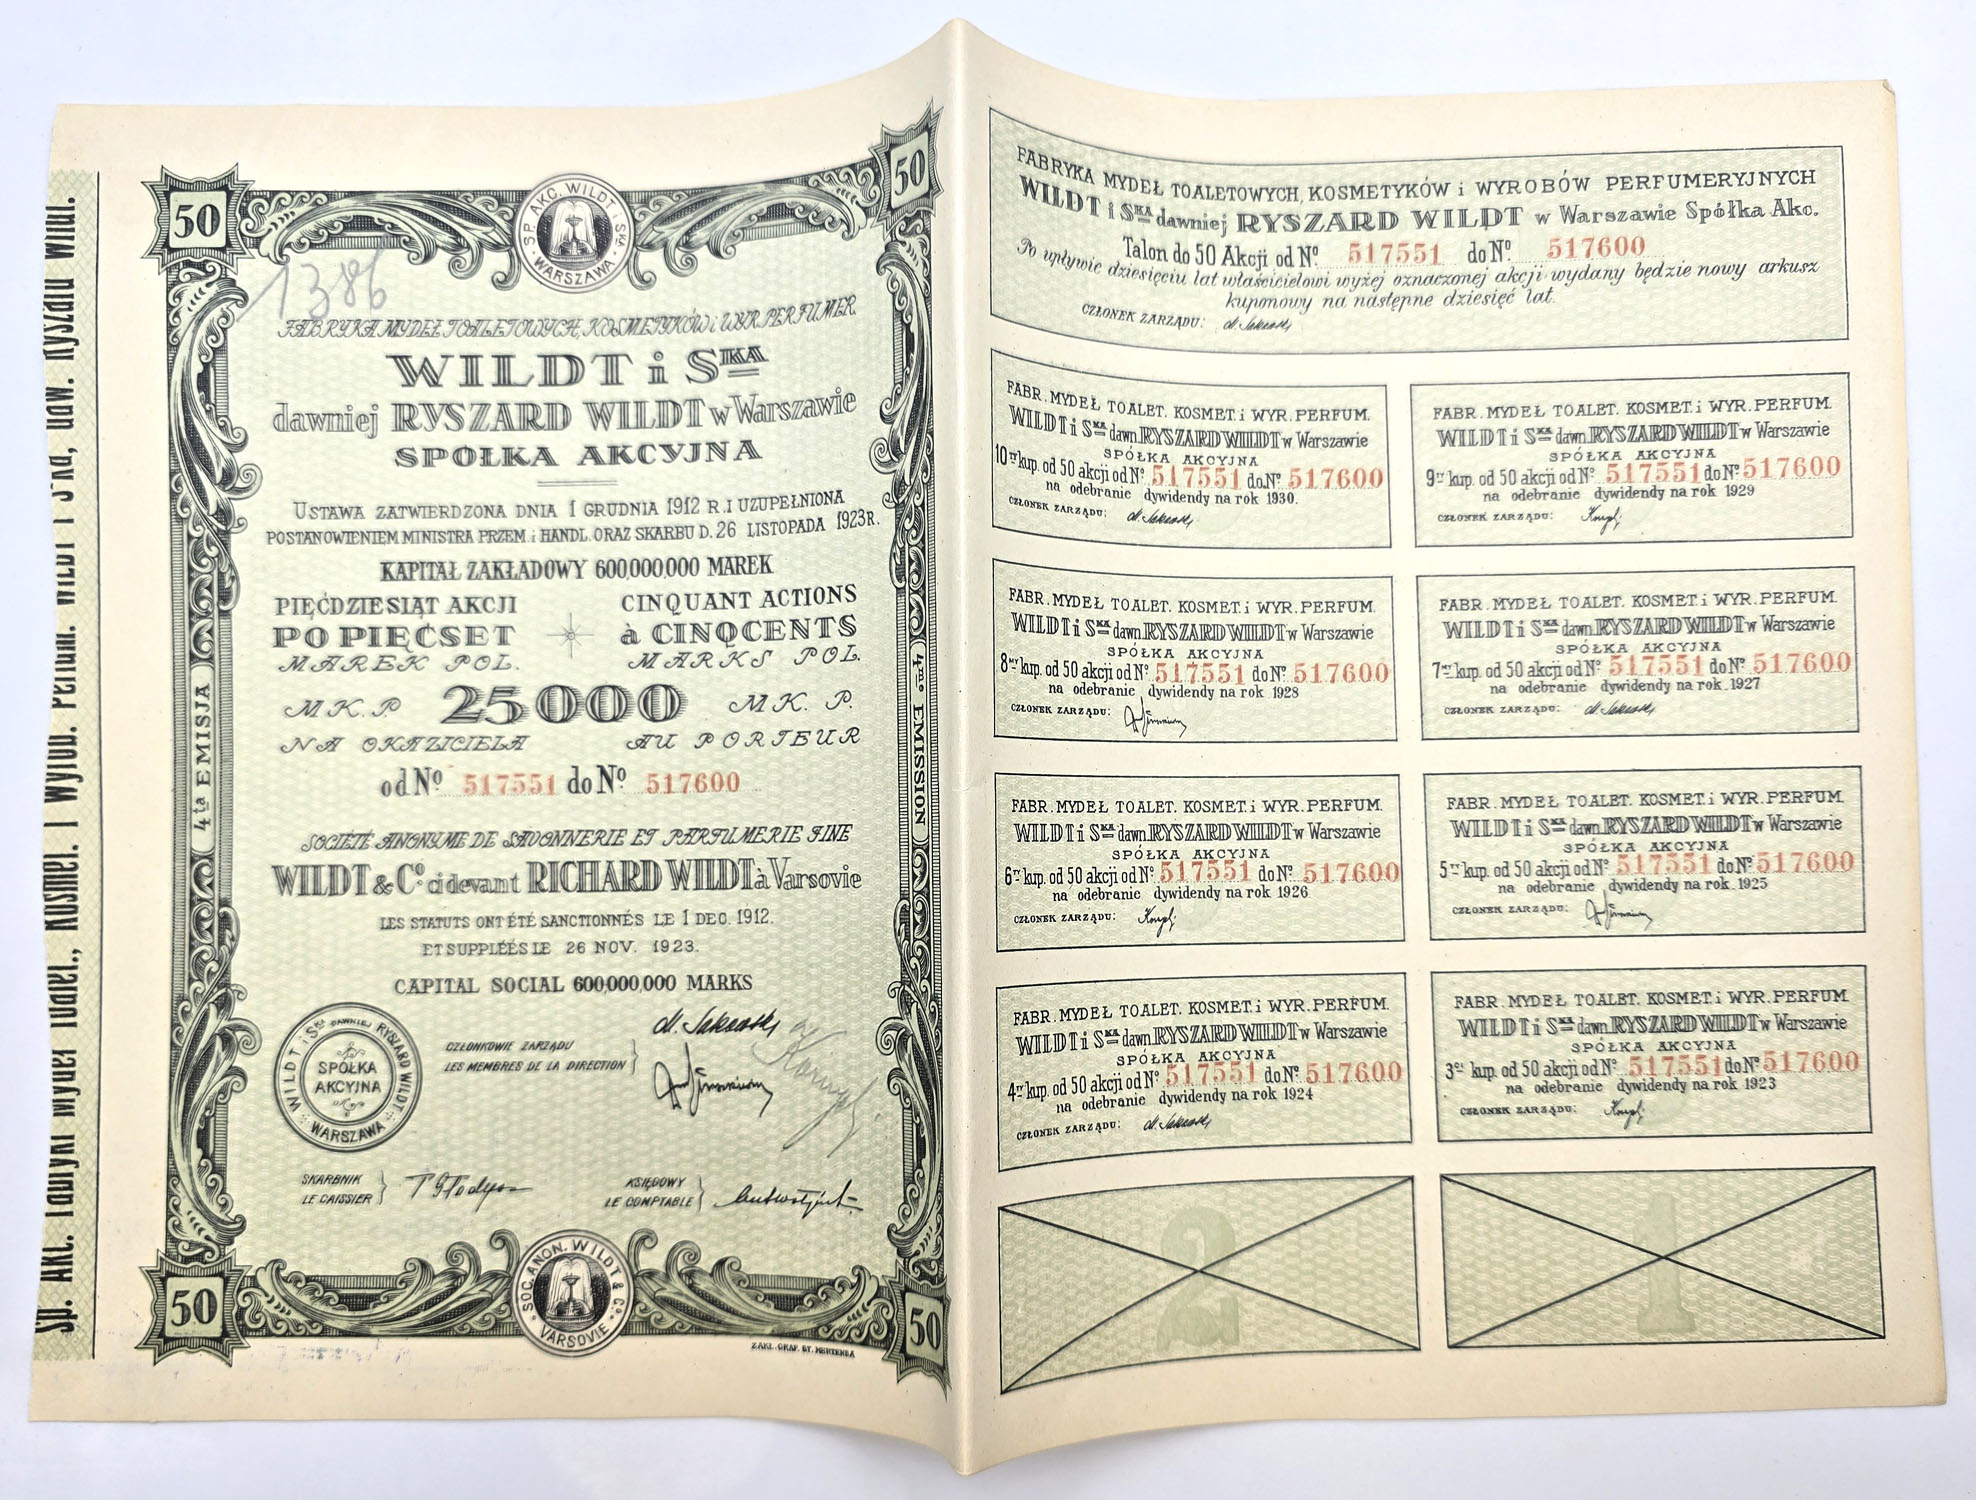 Sp. Akc. Fabryki Mydeł Toalet., Kosmet. i Wyrob. Perfum. WILDT i S-ka, daw. Ryszard Wildt.
50
50
SP. AKC. WILDT i SKA
WARSZAWA
1386
FABRYKA MYDEŁ TOALETOWYCH, KOSMETYKÓW i WYR. PERFUMER.
WILDT i SKA
dawniej RYSZARD WILDT w Warszawie
SPÓŁKA AKCYJNA
USTAWA ZATWIERDZONA DNIA 1 GRUDNIA 1912 R. I UZUPEŁNIONA
POSTANOWIENIEM MINISTRA PRZEM. i HANDL. ORAZ SKARBU D. 26 LISTOPADA 1923 R.
KAPITAŁ ZAKŁADOWY 600,000,000 MAREK
PIĘĆDZIESIĄT AKCJI
PO PIĘĆSET
MAREK POL.
CINQUANT ACTIONS
à CINQCENTS
MARKS POL.
MK.P. 25000 MK. P.
NA OKAZICIELA AU PORTEUR
od No 517551 do No 517600
4ta EMISJA
4me EMISSION
SOCIÉTÉ ANONYME DE SAVONNERIE ET PARFUMERIE FINE
WILDT & Co. cidevant RICHARD WILDT à Varsovie
LES STATUTS ONT ÉTÉ SANCTIONNÉS LE 1 DEC. 1912.
ET SUPPLÉÉS LE 26 NOV. 1923.
CAPITAL SOCIAL 600,000,000 MARKS
WILDT i SKA DAWNIEJ RYSZARD WILDT
SPÓŁKA
AKCYJNA
WARSZAWA
CZŁONKOWIE ZARZĄDU
LES MEMBRES DE LA DIRECTION
SKARBNIK
LE CAISSIER
KSIĘGOWY
LE COMPTABLE
50
50
SOC. ANON. WILDT & Co.
VARSOVIE
ZAKŁ. GRAF. ST. MERTENSA
FABRYKA MYDEŁ TOALETOWYCH, KOSMETYKÓW i WYROBÓW PERFUMERYJNYCH
WILDT i SKA dawniej RYSZARD WILDT w Warszawie Spółka Akc.
Talon do 50 Akcji od No 517551 do No. 517600
Po upływie dziesięciu lat właścicielowi wyżej oznaczonej akcji wydany będzie nowy arkusz
kuponowy na następne dziesięć lat.
CZŁONEK ZARZĄDU:
FABR. MYDEŁ TOALET. KOSMET. i WYR. PERFUM.
WILDT i SKA dawn. RYSZARD WILDT w Warszawie
SPÓŁKA AKCYJNA
10ty kup. od 50 akcji od No. 517551 do No. 517600
na odebranie dywidendy na rok 1930.
CZŁONEK ZARZĄDU:
FABR. MYDEŁ TOALET. KOSMET. i WYR. PERFUM.
WILDT i SKA dawn. RYSZARD WILDT w Warszawie
SPÓŁKA AKCYJNA
9ty kup. od 50 akcji od No. 517551 do No. 517600
na odebranie dywidendy na rok 1929
CZŁONEK ZARZĄDU:
FABR. MYDEŁ TOALET. KOSMET. i WYR. PERFUM.
WILDT i SKA dawn. RYSZARD WILDT w Warszawie
SPÓŁKA AKCYJNA
8my kup. od 50 akcji od No. 517551 do No. 517600
na odebranie dywidendy na rok 1928
CZŁONEK ZARZĄDU:
FABR. MYDEŁ TOALET. KOSMET. i WYR. PERFUM.
WILDT i SKA dawn. RYSZARD WILDT w Warszawie
SPÓŁKA AKCYJNA
7my kup. od 50 akcji od No. 517551 do No. 517600
na odebranie dywidendy na rok 1927
CZŁONEK ZARZĄDU:
FABR. MYDEŁ TOALET. KOSMET. i WYR. PERFUM.
WILDT i SKA dawn. RYSZARD WILDT w Warszawie
SPÓŁKA AKCYJNA
6ty kup. od 50 akcji od No. 517551 do No. 517600
na odebranie dywidendy na rok 1926
CZŁONEK ZARZĄDU:
FABR. MYDEŁ TOALET. KOSMET. i WYR. PERFUM.
WILDT i SKA dawn. RYSZARD WILDT w Warszawie
SPÓŁKA AKCYJNA
5ty kup. od 50 akcji od No. 517551 do No. 517600
na odebranie dywidendy na rok 1925
CZŁONEK ZARZĄDU:
FABR. MYDEŁ TOALET. KOSMET. i WYR. PERFUM.
WILDT i SKA dawn. RYSZARD WILDT w Warszawie
SPÓŁKA AKCYJNA
4ty kup. od 50 akcji od No. 517551 do No. 517600
na odebranie dywidendy na rok 1924
CZŁONEK ZARZĄDU:
FABR. MYDEŁ TOALET. KOSMET. i WYR. PERFUM.
WILDT i SKA dawn. RYSZARD WILDT w Warszawie
SPÓŁKA AKCYJNA
3ci kup. od 50 akcji od No. 517551 do No. 517600
na odebranie dywidendy na rok 1923
CZŁONEK ZARZĄDU:
2
1